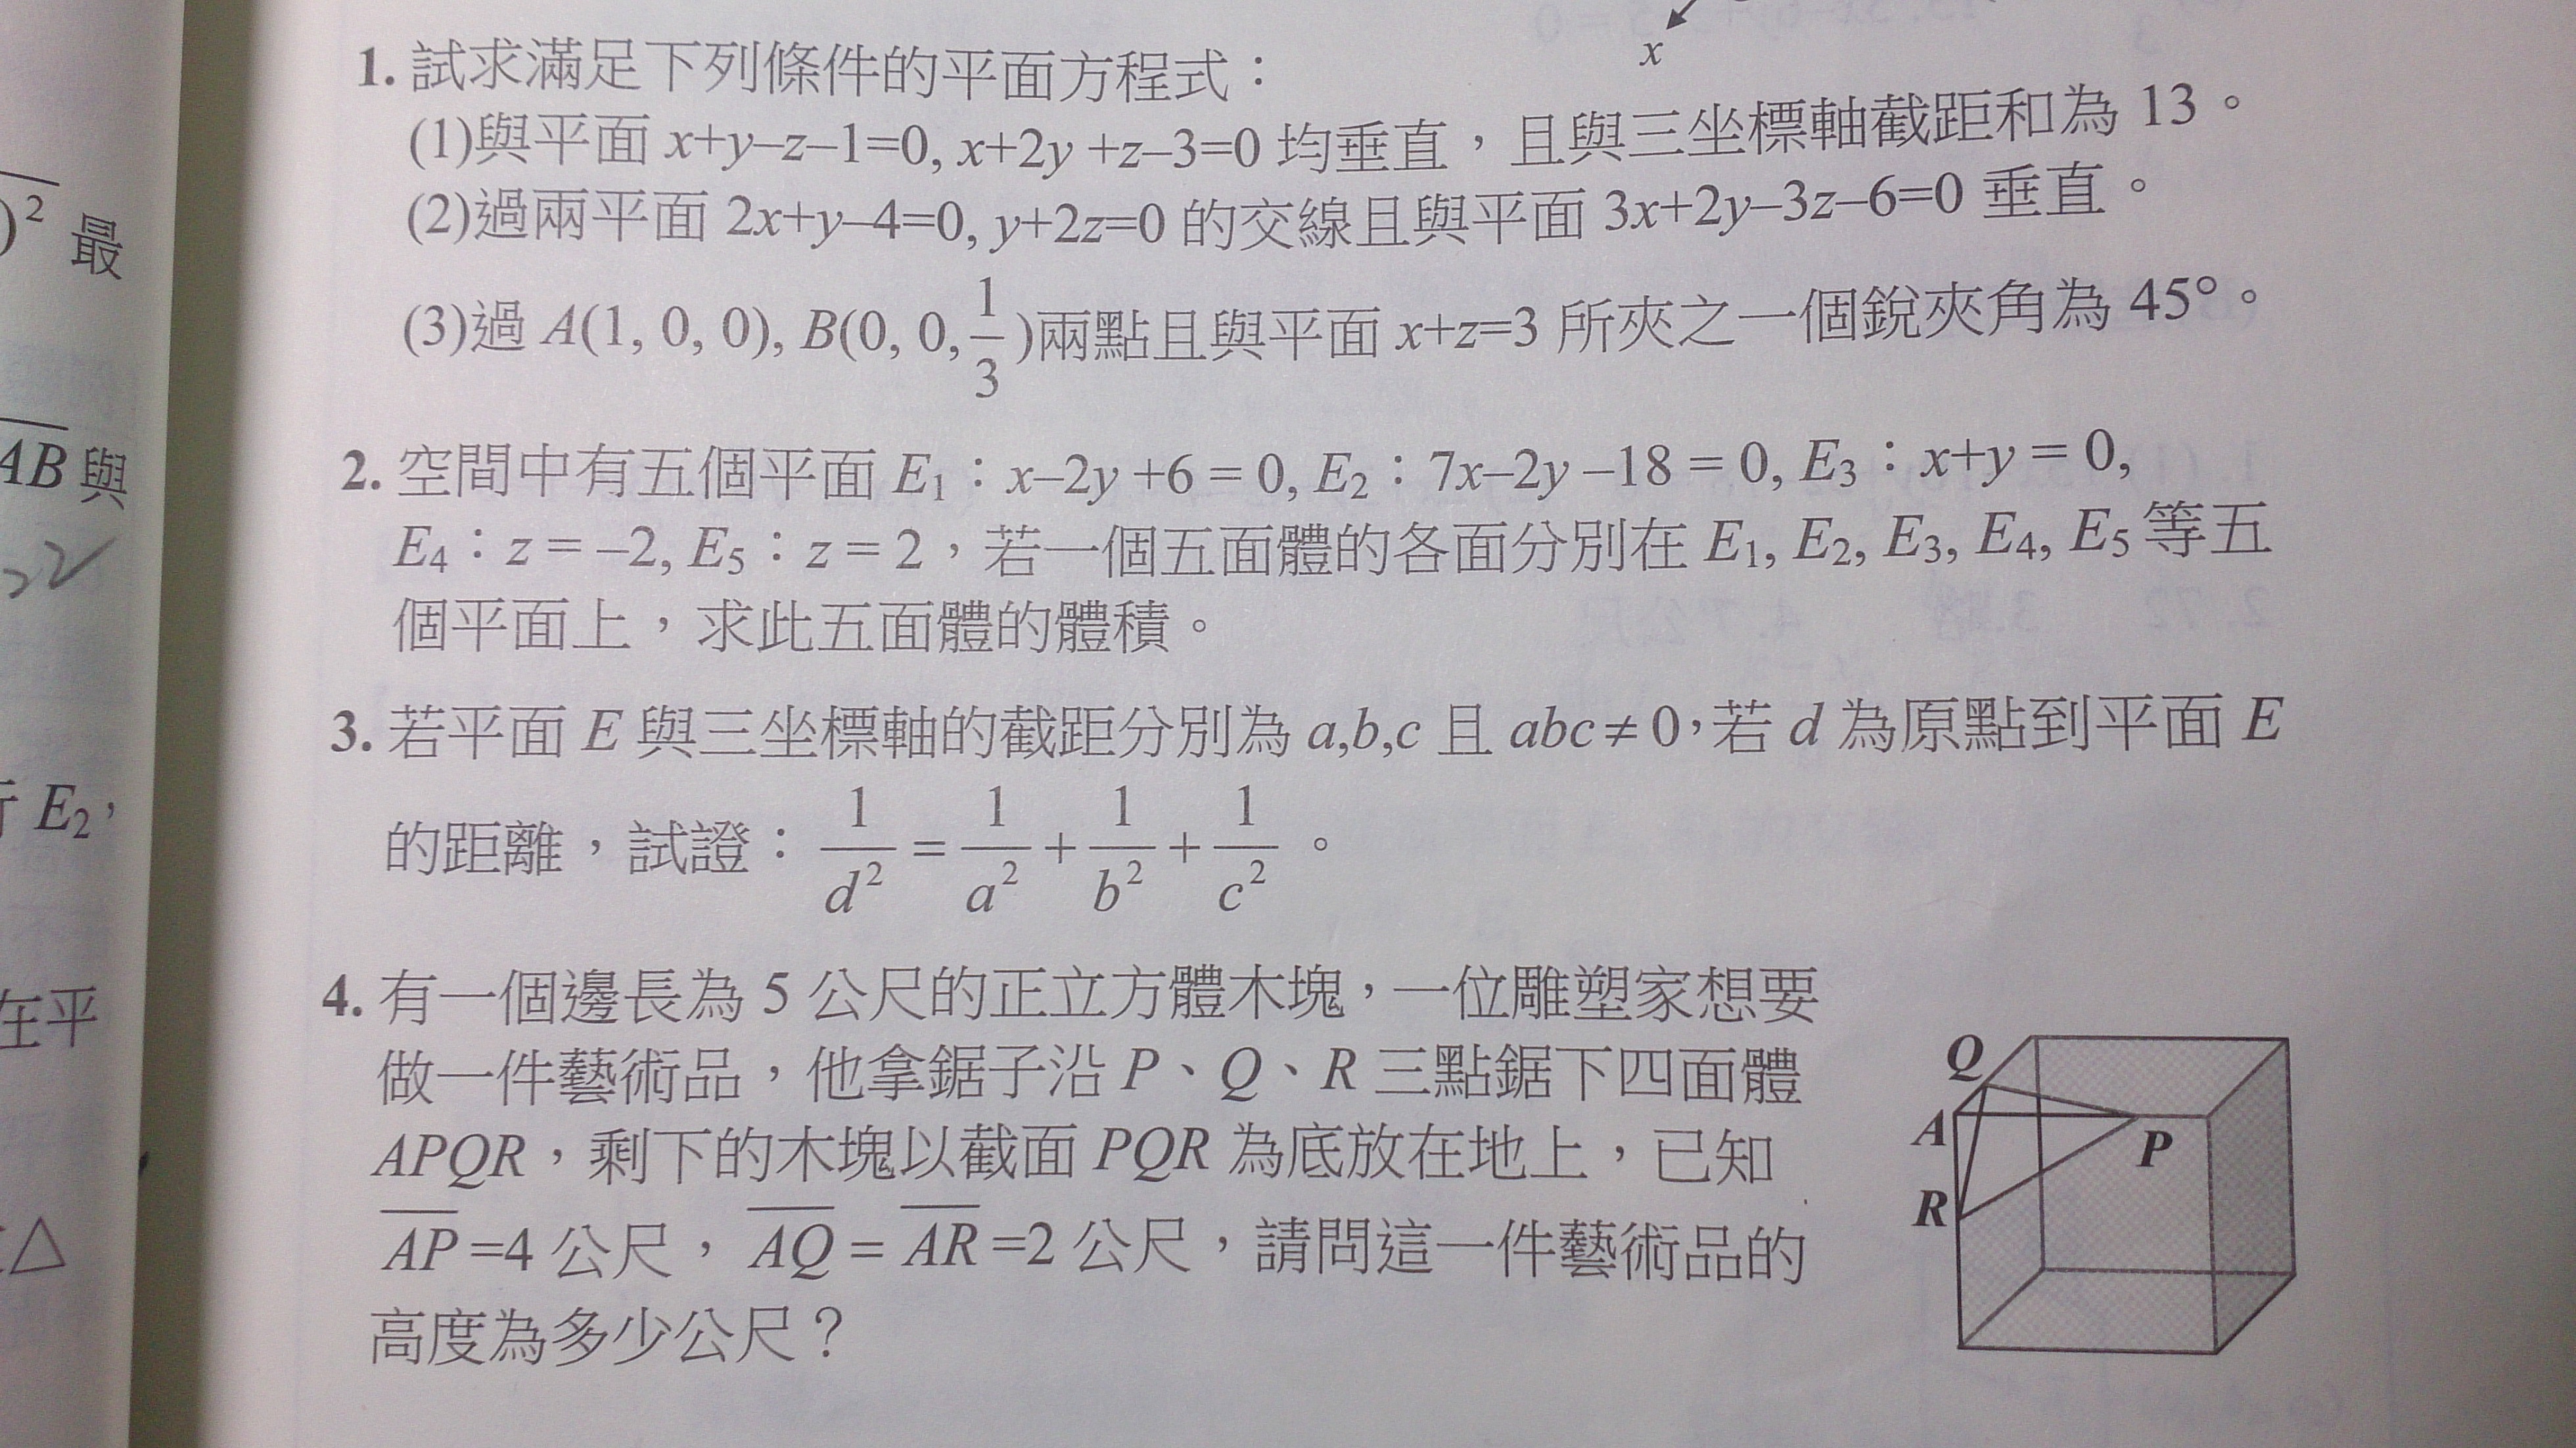 x
1. 試求滿足下列條件的平面方程式：
(1)與平面 x+y–z–1=0, x+2y +z–3=0 均垂直，且與三坐標軸截距和為 13。
(2)過兩平面 2x+y–4=0, y+2z=0 的交線且與平面 3x+2y–3z–6=0 垂直。
(3)過 A(1, 0, 0), B(0, 0, 1/3)兩點且與平面 x+z=3 所夾之一個銳夾角為 45°。
2. 空間中有五個平面 E₁：x–2y +6 = 0, E₂：7x–2y –18 = 0, E₃：x+y = 0,
E₄：z = –2, E₅：z = 2，若一個五面體的各面分別在 E₁, E₂, E₃, E₄, E₅ 等五
個平面上，求此五面體的體積。
3. 若平面 E 與三坐標軸的截距分別為 a,b,c 且 abc ≠ 0，若 d 為原點到平面 E
的距離，試證：1/d² = 1/a² + 1/b² + 1/c²。
4. 有一個邊長為 5 公尺的正立方體木塊，一位雕塑家想要
做一件藝術品，他拿鋸子沿 P、Q、R 三點鋸下四面體
APQR，剩下的木塊以截面 PQR 為底放在地上，已知
A̅P̅=4 公尺，A̅Q̅ = A̅R̅ =2 公尺，請問這一件藝術品的
高度為多少公尺？
Q
A
P
R
)² 最
A̅B̅ 與
E₂，
在平
△